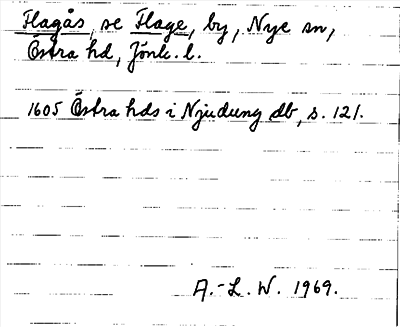 Flagås, se Flage, by, Nye sn,
Östra hd, Jönk. l.
1605 Östra hds i Njudung db, s. 121.
A.-L. W. 1969.